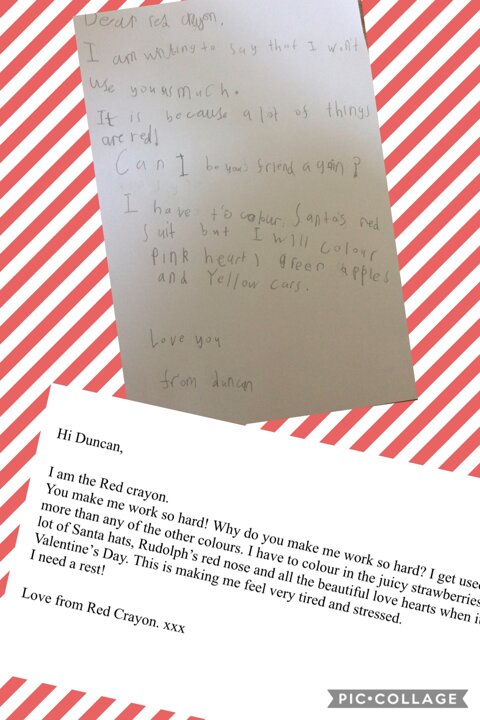 Dear red crayon.
I am writing to say that I won't
use you as much.
It is because a lot of things
are red!
Can I be your friend again?
I have to colour Santa's red
suit but I will colour
pink hearts green apples
and Yellow cars.
Love you
from duncan
Hi Duncan,
I am the Red crayon.
You make me work so hard! Why do you make me work so hard? I get used
more than any of the other colours. I have to colour in the juicy strawberries
lot of Santa hats, Rudolph's red nose and all the beautiful love hearts when it
Valentine's Day. This is making me feel very tired and stressed.
I need a rest!
Love from Red Crayon. xxx
PIC•COLLAGE